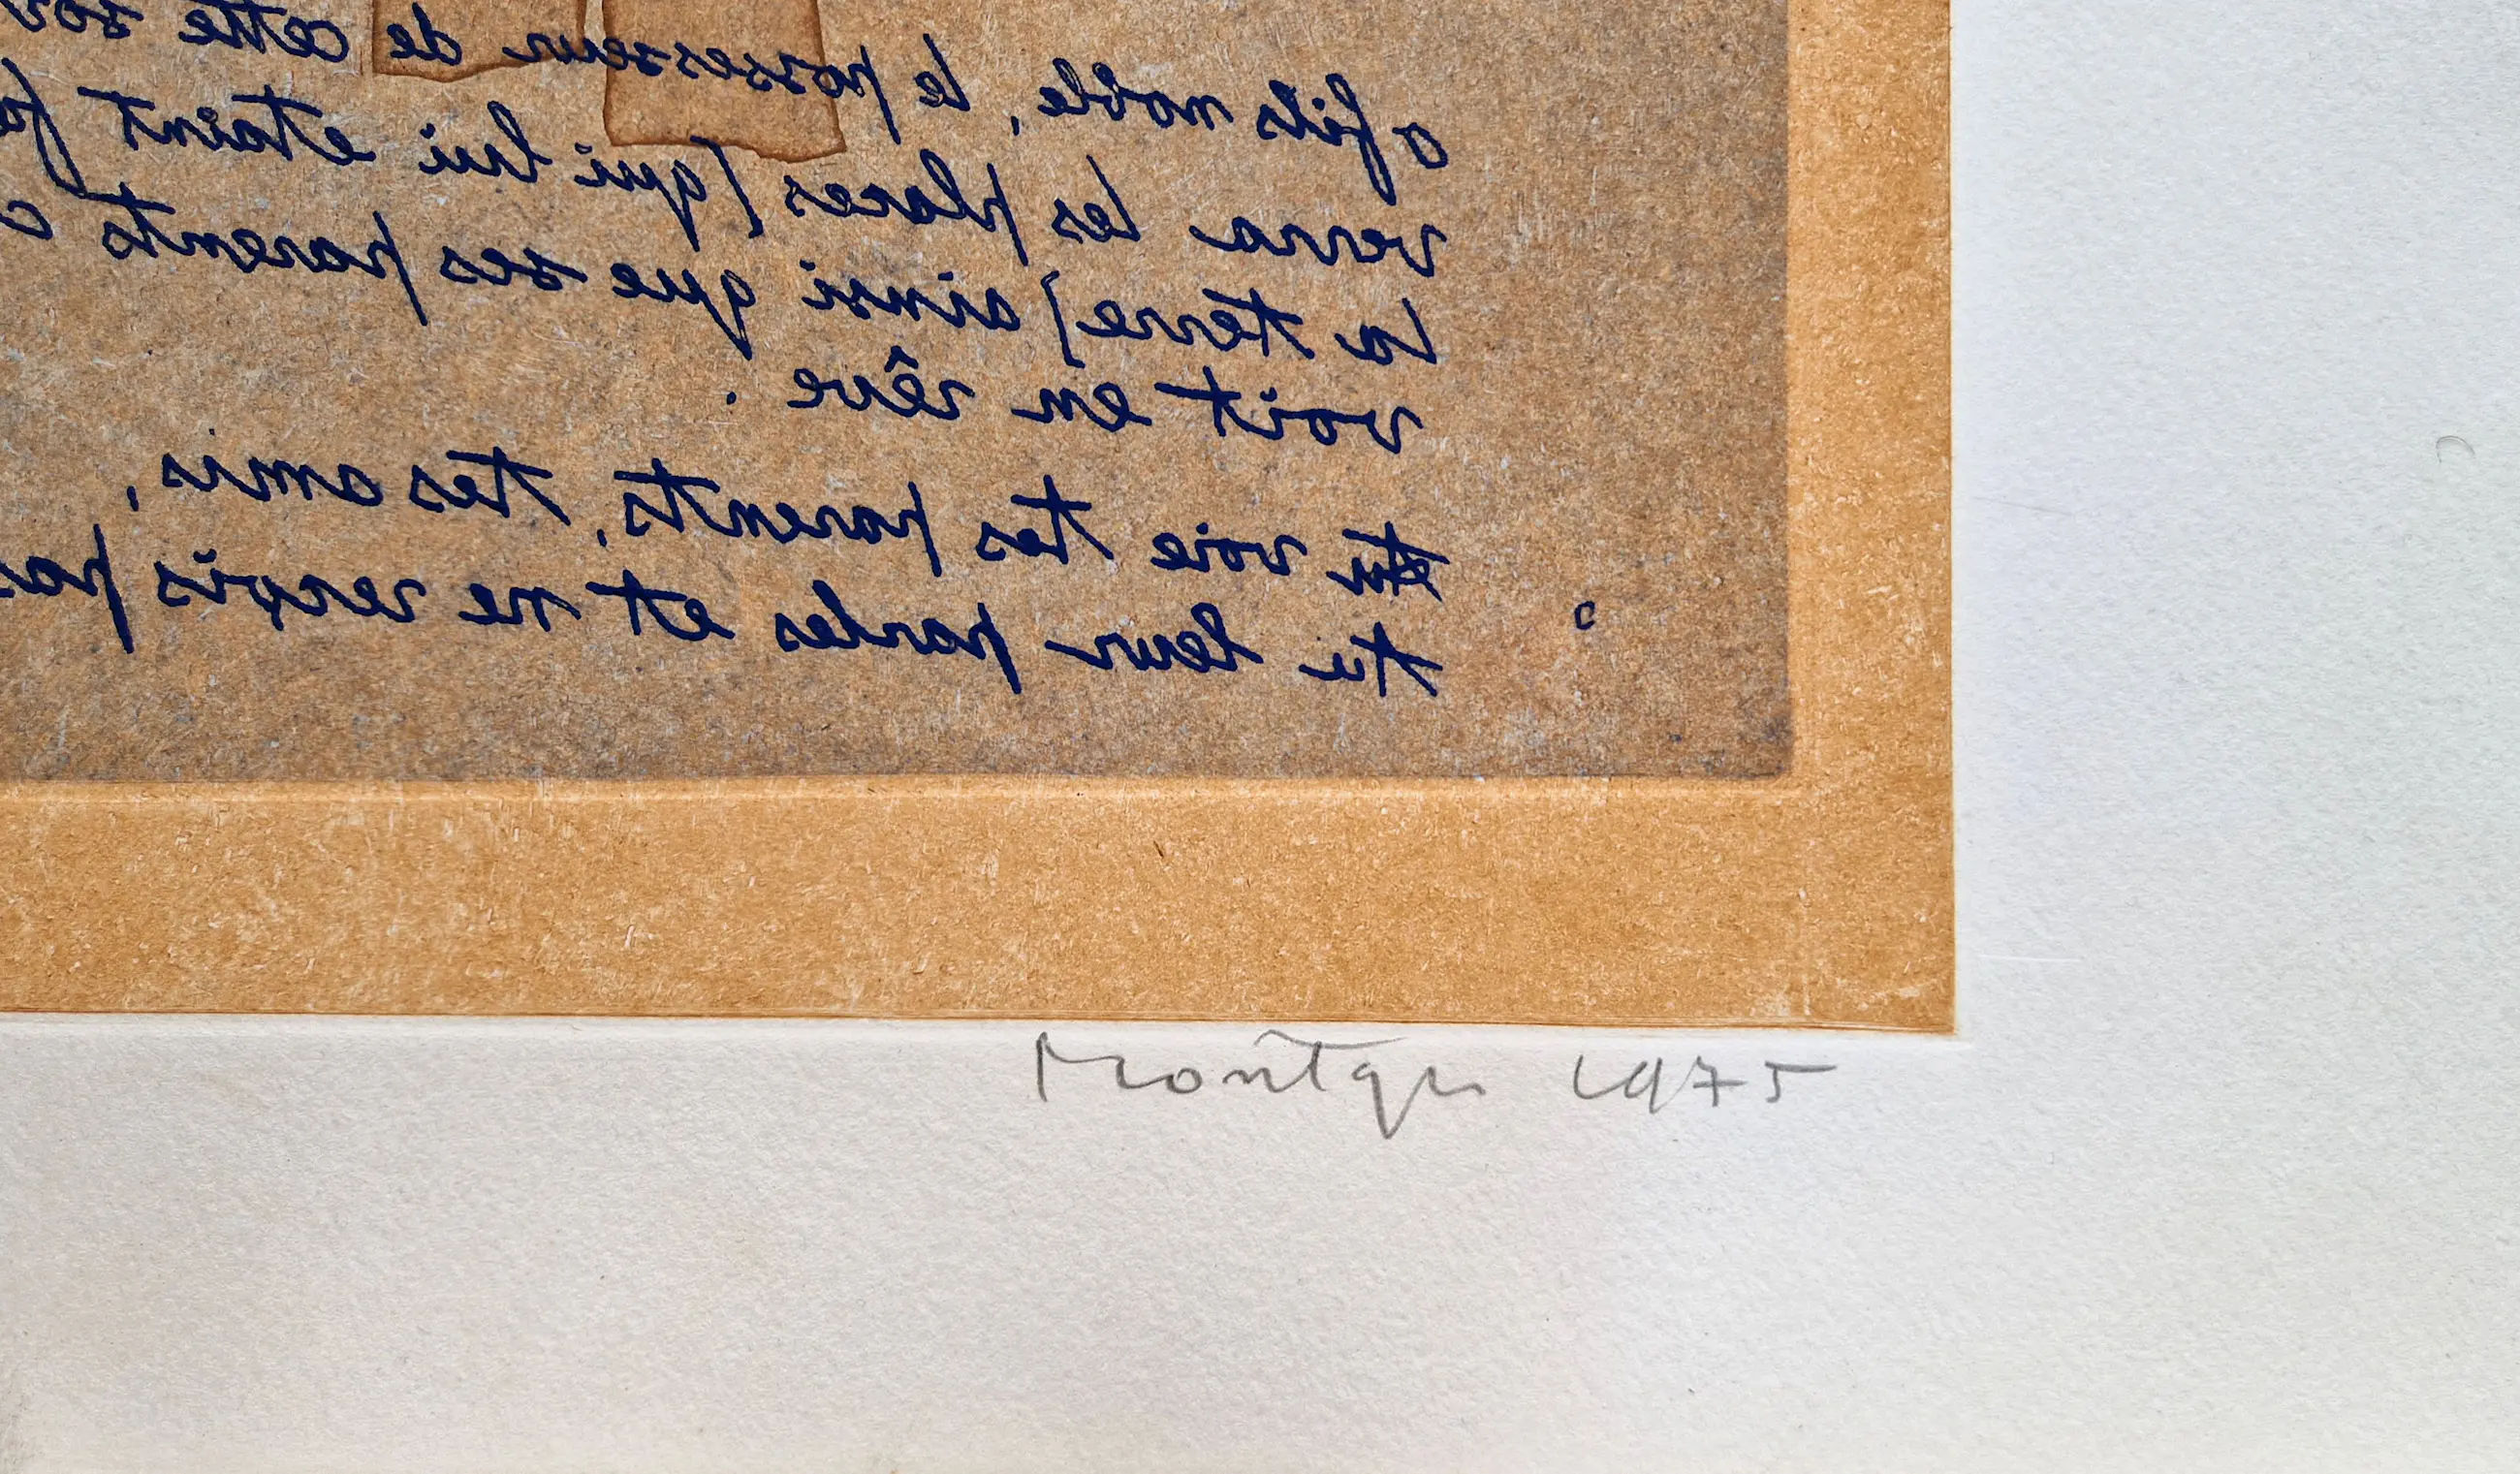 o fils noble, le possesseur de cette sor
verra les places [qui lui etaint fa
la terre] ainsi que ses parents c
voit en rêve.
tu voie tes parents, tes amis,
tu leur parles et ne reçois pas
Montqu 1975